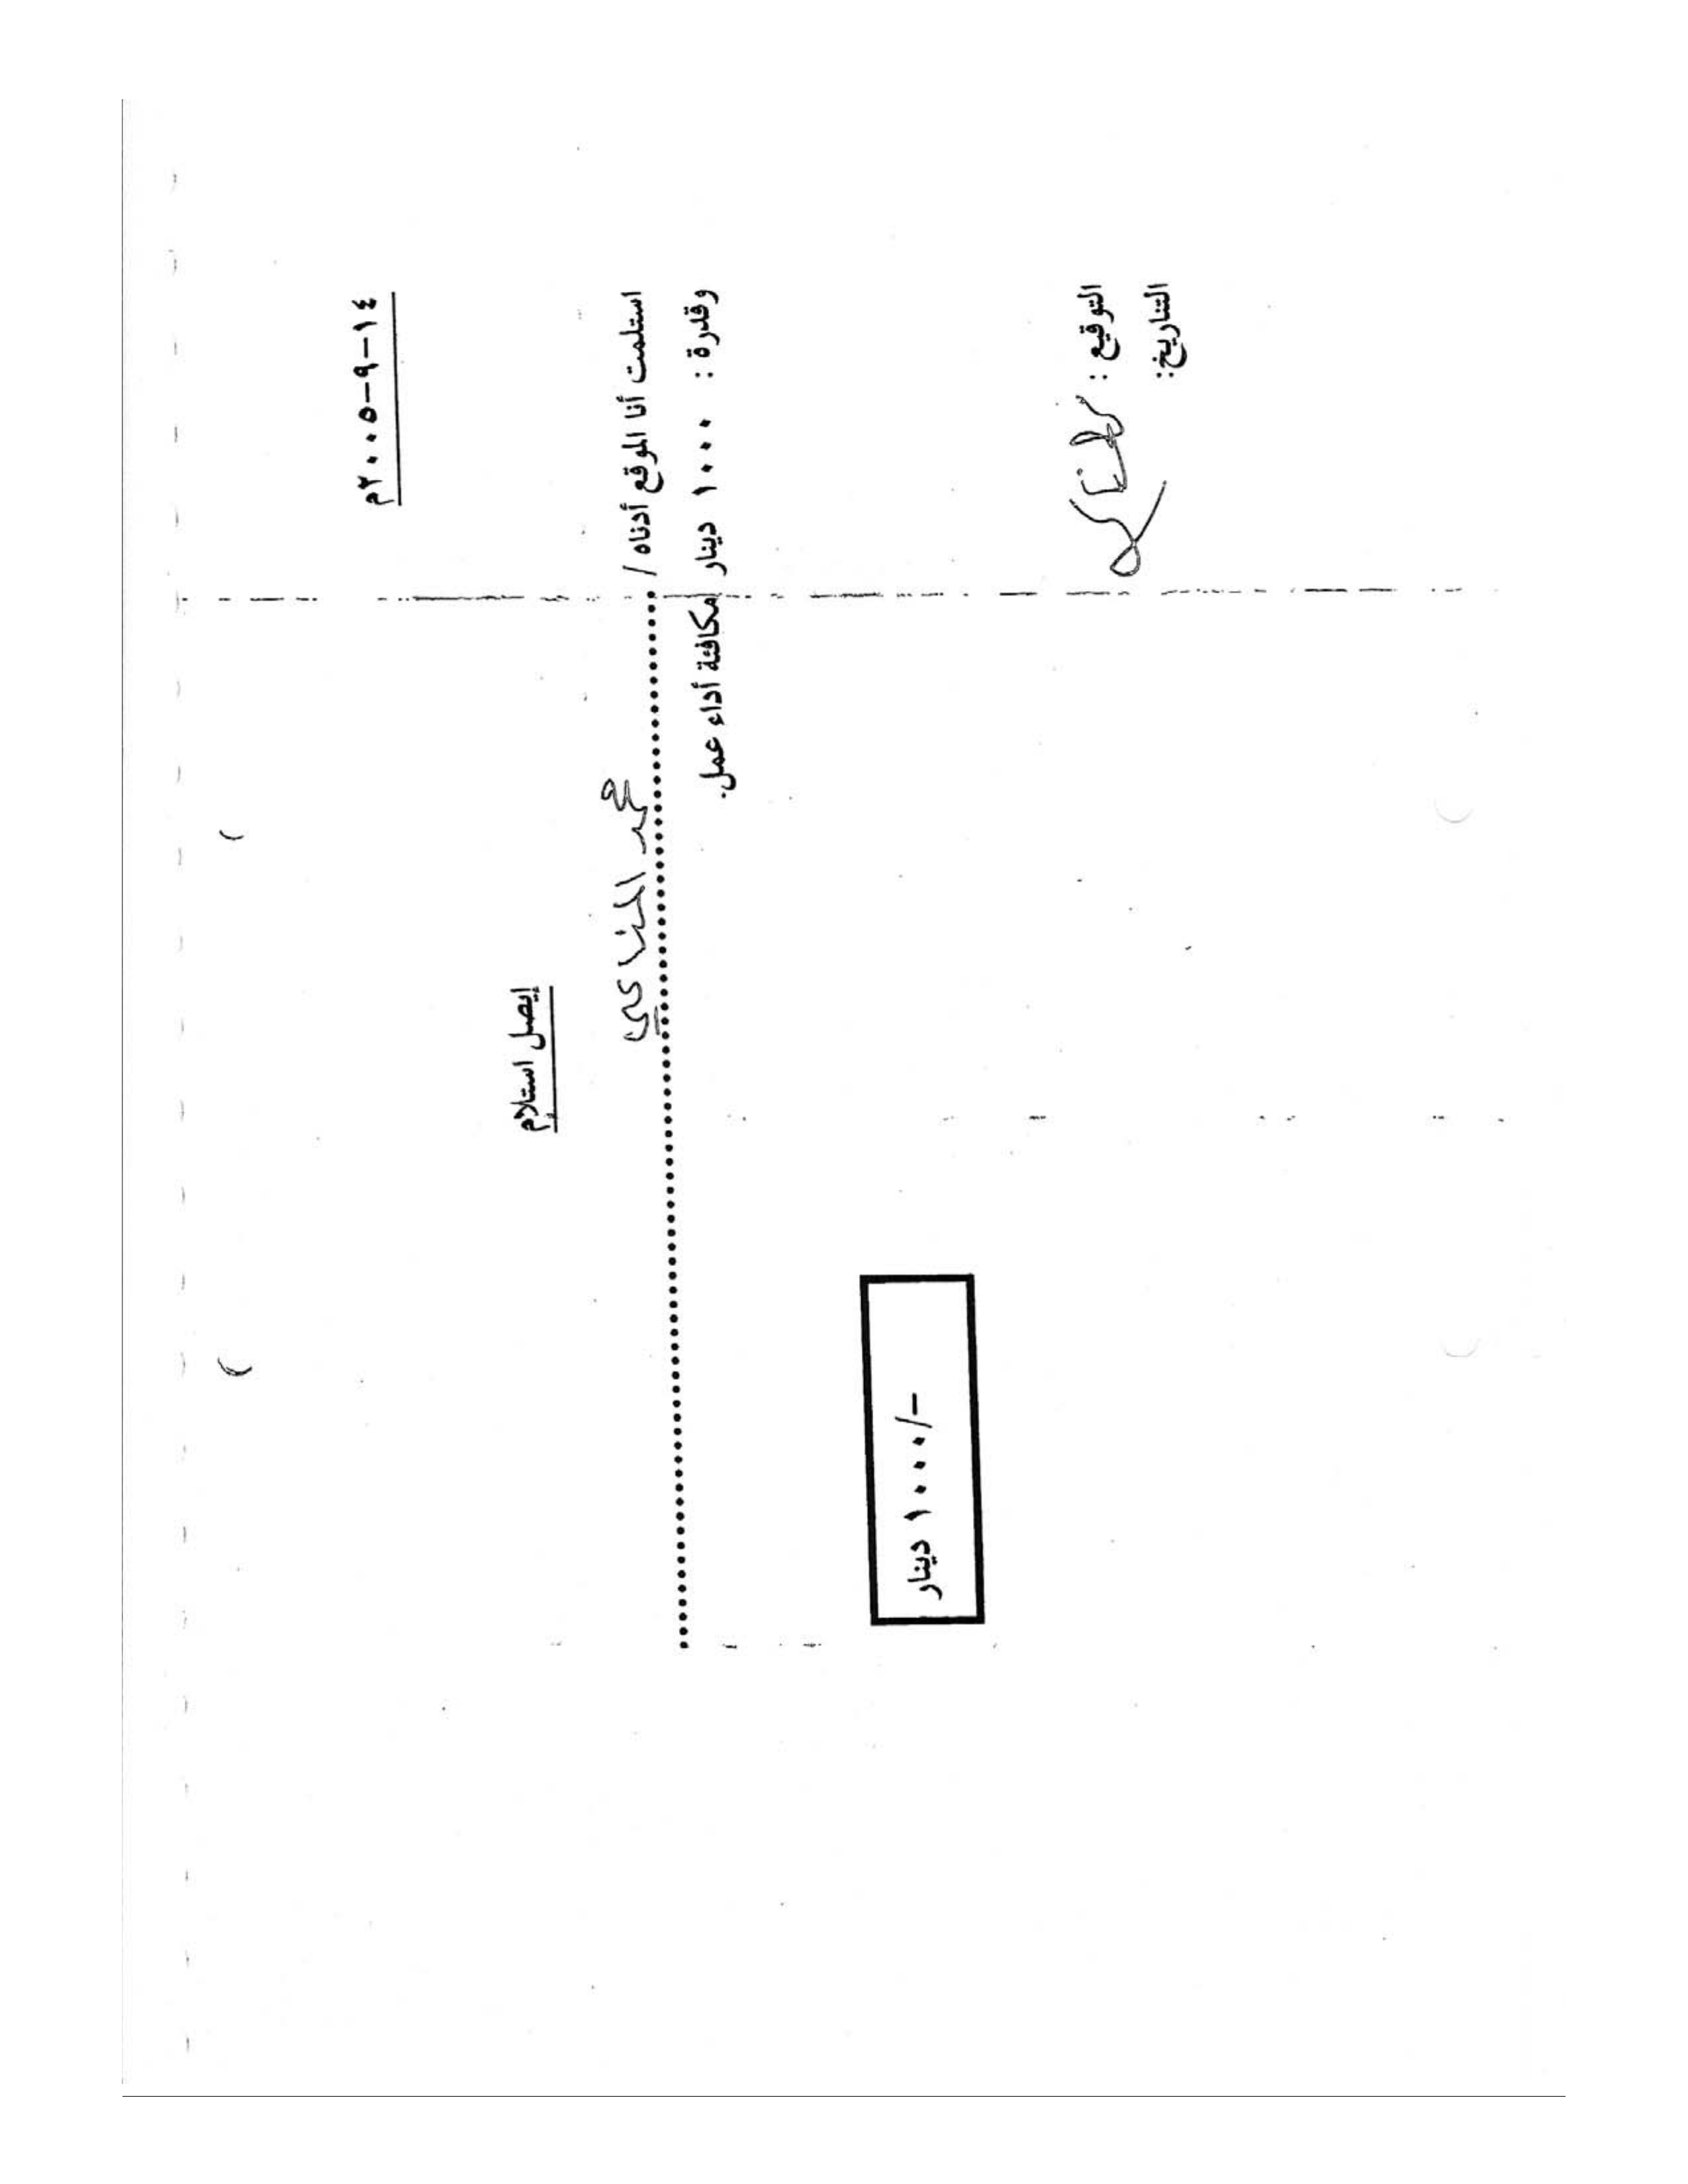 ١٤-٩-٢٠٠٥م
إيصل استلام
استلمت أنا الموقع أدناه / محمد المناعي
وقدرة : ١٠٠٠ دينار مكافئة أداء عمل.
١٠٠٠/- دينار
التوقيع :
التاريخ: